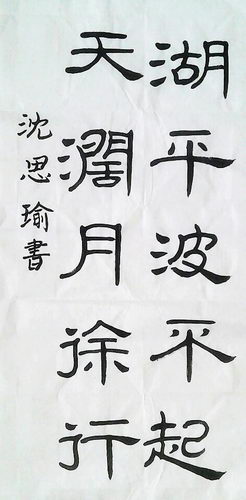 湖平波不起
天濶月徐行
沈思瑜書